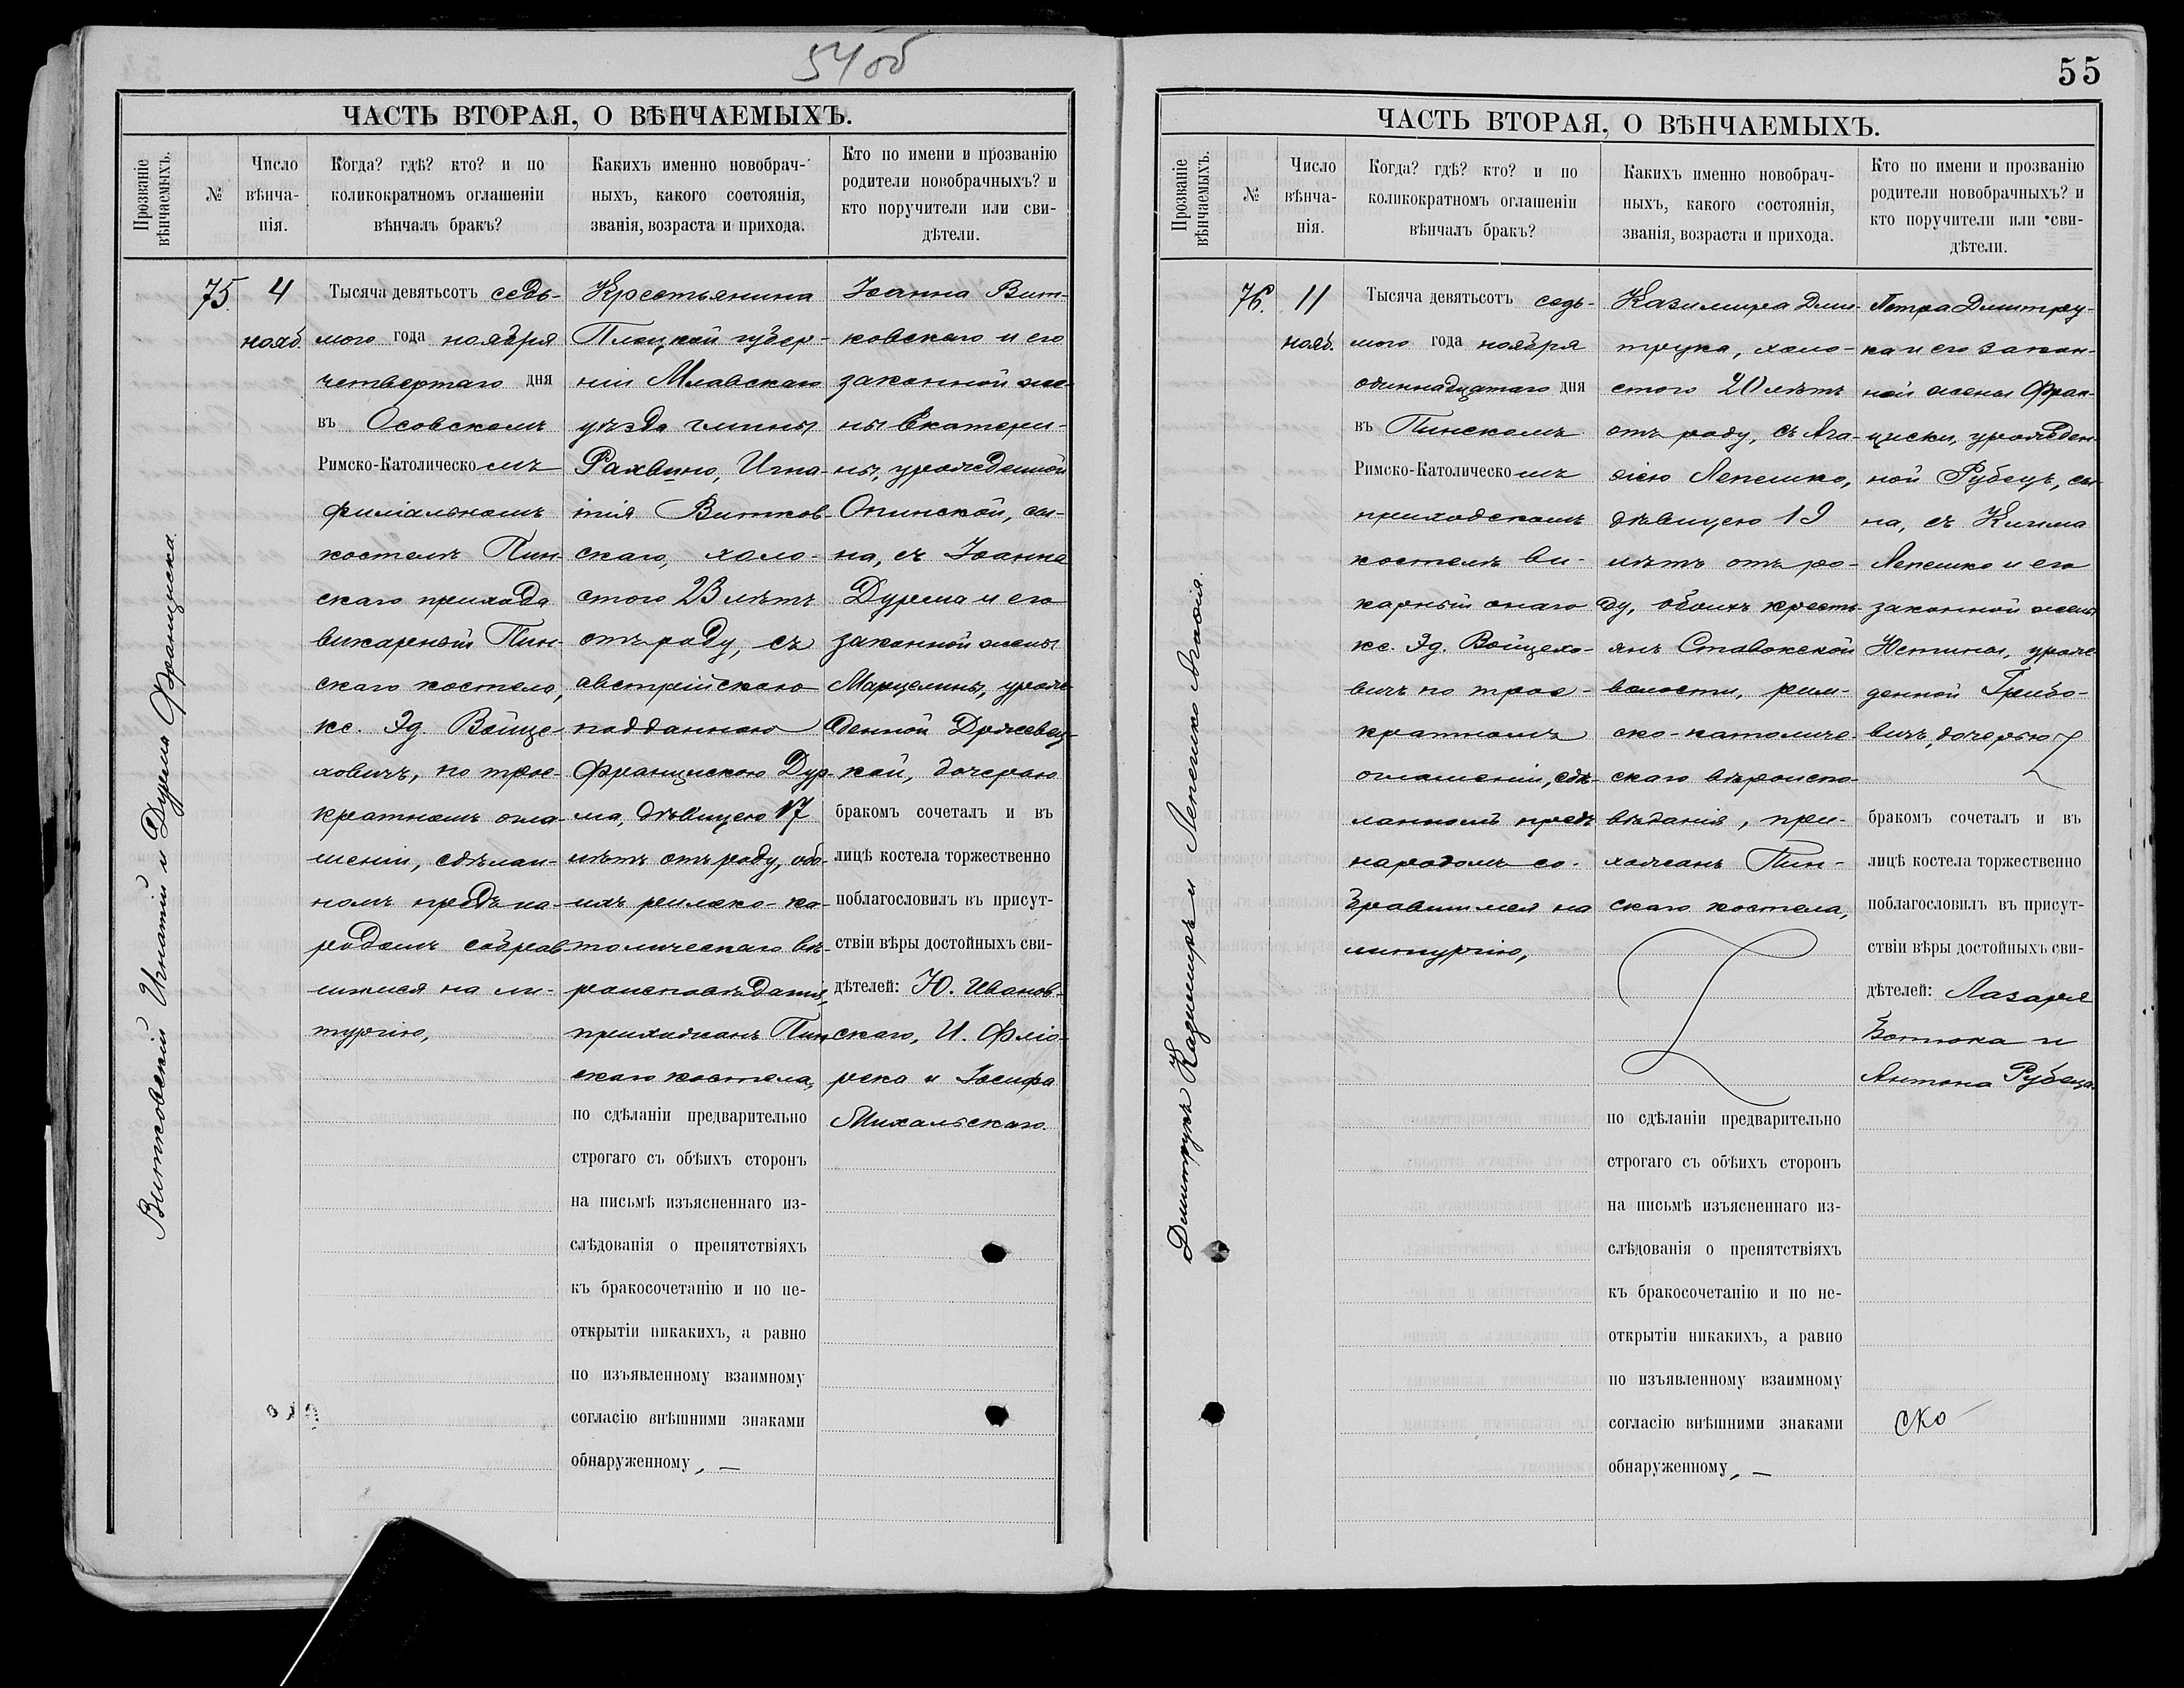 54 об
ЧАСТЬ ВТОРАЯ, О ВѢНЧАЕМЫХЪ.
Прозваніе
вѣнчаемыхъ.
№
Число
вѣнча-
нія.
Когда? гдѣ? кто? и по
коликократномъ оглашеніи
вѣнчалъ бракъ?
Какихъ именно новобрач-
ныхъ, какого состоянія,
званія, возраста и прихода.
Кто по имени и прозванію
родители новобрачныхъ? и
кто поручители или сви-
дѣтели.
Витковскій Игнатій и Дурма Франциска.
75.
4
нояб.
Тысяча девятьсотъ седь-
мого года ноября
четвертаго дня
въ Осовскомъ
Римско-Католическомъ
филіальномъ
костелѣ Пин-
скаго прихода
викарный Пин-
скаго костела,
кс. Эд. Войце-
ховичъ, по трое-
кратномъ огла-
шеніи, сдѣлан-
номъ предъ на-
родомъ собрав-
шимся на ли-
тургію,
Крестьянина
Плоцкой губер-
ніи Млавскаго
уѣзда гмины
Рахвино, Игна-
тія Витков-
скаго, холо-
стого 23 лѣтъ
отъ роду, съ
австрійскою
подданною
Францискою Дур-
ма, дѣвицею 17
лѣтъ отъ роду, обо-
ихъ римско-ка-
толическаго вѣ-
роисповѣданія,
прихожанъ Пин-
скаго костела,
по сдѣланіи предварительно
строгаго съ обѣихъ сторонъ
на письмѣ изъясненнаго из-
слѣдованія о препятствіяхъ
къ бракосочетанію и по не-
открытіи никакихъ, а равно
по изъявленному взаимному
согласію внѣшними знаками
обнаруженному, —
Іоанна Вит-
ковскаго и его
законной же-
ны Екатери-
ны, урожденной
Опинской, сы-
на, съ Іоанна
Дурма и его
законной жены
Марцелины, урож-
денной Држевец-
кой, дочерью
бракомъ сочеталъ и въ
лицѣ костела торжественно
поблагословилъ въ присут-
ствіи вѣры достойныхъ сви-
дѣтелей: Ю. Иванов-
скаго, И. Фліо-
река и Іосифа
Михальскаго.
55
ЧАСТЬ ВТОРАЯ, О ВѢНЧАЕМЫХЪ.
Прозваніе
вѣнчаемыхъ.
№
Число
вѣнча-
нія.
Когда? гдѣ? кто? и по
коликократномъ оглашеніи
вѣнчалъ бракъ?
Какихъ именно новобрач-
ныхъ, какого состоянія,
званія, возраста и прихода.
Кто по имени и прозванію
родители новобрачныхъ? и
кто поручители или сви-
дѣтели.
Дмитрукъ Казимиръ и Лепешко Агаѳія.
76.
11
нояб.
Тысяча девятьсотъ седь-
мого года ноября
одиннадцатаго дня
въ Пинскомъ
Римско-Католическомъ
приходскомъ
костелѣ ви-
карный онаго
кс. Эд. Войцехо-
вичъ по трое-
кратномъ
оглашеніи, сдѣ-
ланномъ предъ
народомъ со-
бравшимся на
литургію,
Казимира Дми-
трука, холо-
стого 20 лѣтъ
отъ роду, съ Ага-
ѳіею Лепешко,
дѣвицею 19
лѣтъ отъ ро-
ду, обоихъ кресть-
янъ Ставокской
волости, рим-
ско-католиче-
скаго вѣроиспо-
вѣданія, при-
хожанъ Пин-
скаго костела,
по сдѣланіи предварительно
строгаго съ обѣихъ сторонъ
на письмѣ изъясненнаго из-
слѣдованія о препятствіяхъ
къ бракосочетанію и по не-
открытіи никакихъ, а равно
по изъявленному взаимному
согласію внѣшними знаками
обнаруженному, —
Петра Дмитру-
ка и его закон-
ной жены Фран-
циски, урожден-
ной Рубецъ, сы-
на, съ Кигима
Лепешко и его
законной жены
Юстины, урож-
денной Грибо-
вичъ, дочерью
бракомъ сочеталъ и въ
лицѣ костела торжественно
поблагословилъ въ присут-
ствіи вѣры достойныхъ сви-
дѣтелей: Лазаря
Ботюка и
Антона Рубеца.
ско